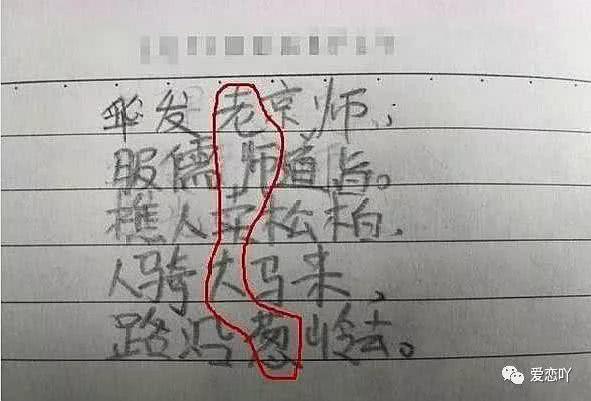 发老京师,
服儒师道旨。
樵人卖松柏,
人骑大马来,
路葱岭去。
爱恋吖